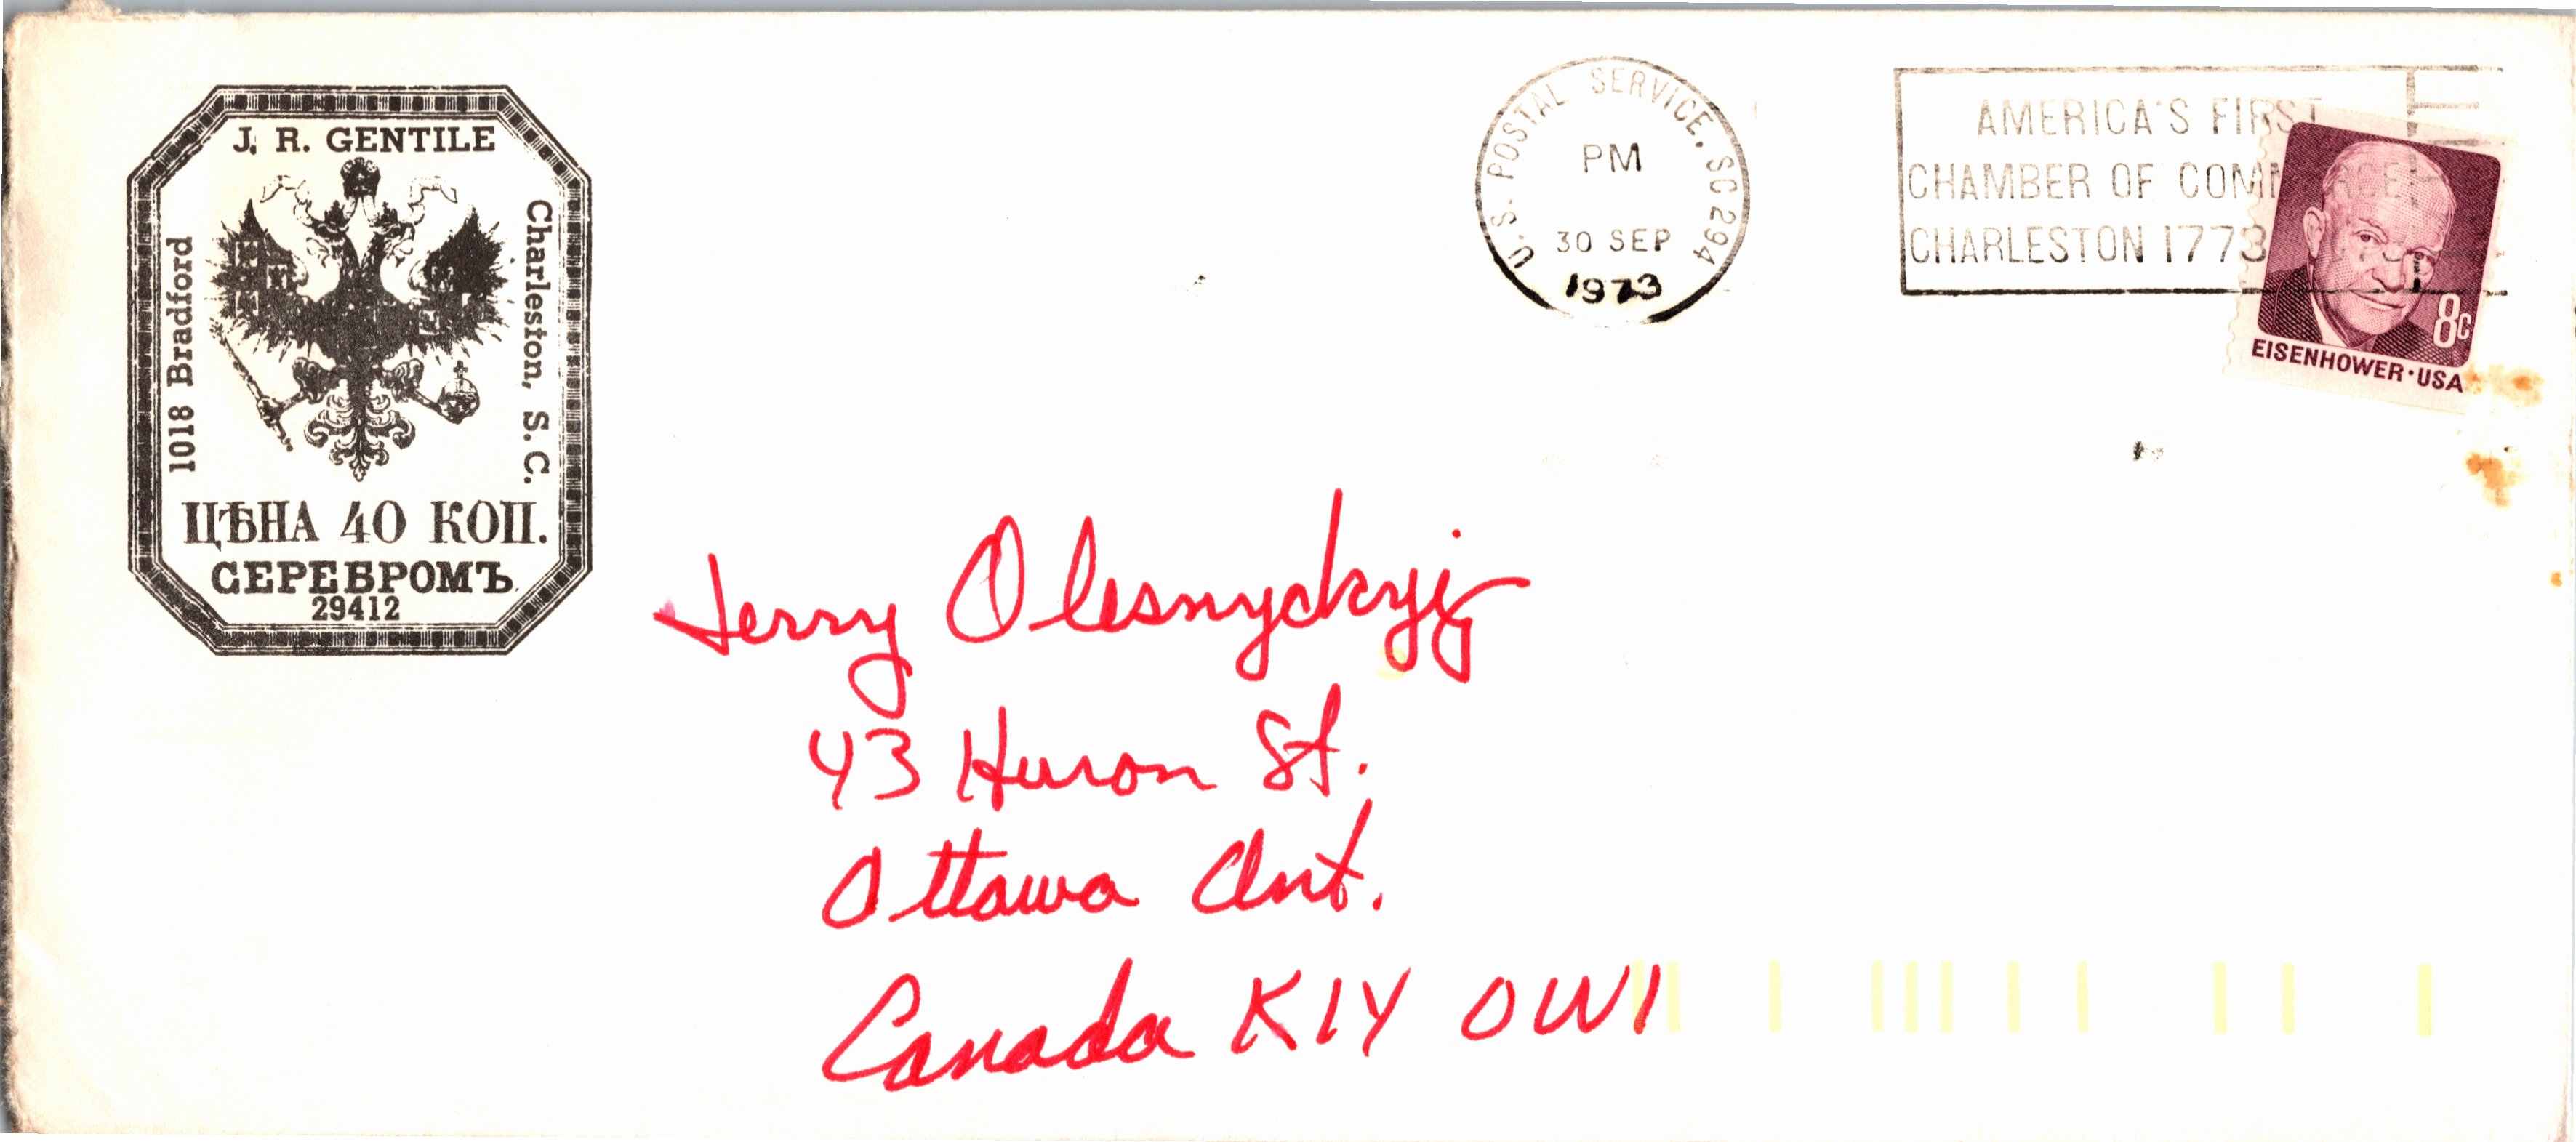 J. R. GENTILE
1018 Bradford
Charleston, S. C.
ЦѢНА 40 КОП.
СЕРЕБРОМЪ.
29412
U.S. POSTAL SERVICE, SC 294
PM
30 SEP
1973
AMERICA'S FIRST
CHAMBER OF COMMERCE
CHARLESTON 1773
8c
EISENHOWER·USA
Jerry Olesnyckyj
43 Huron St.
Ottawa Ont.
Canada K1Y 0W1